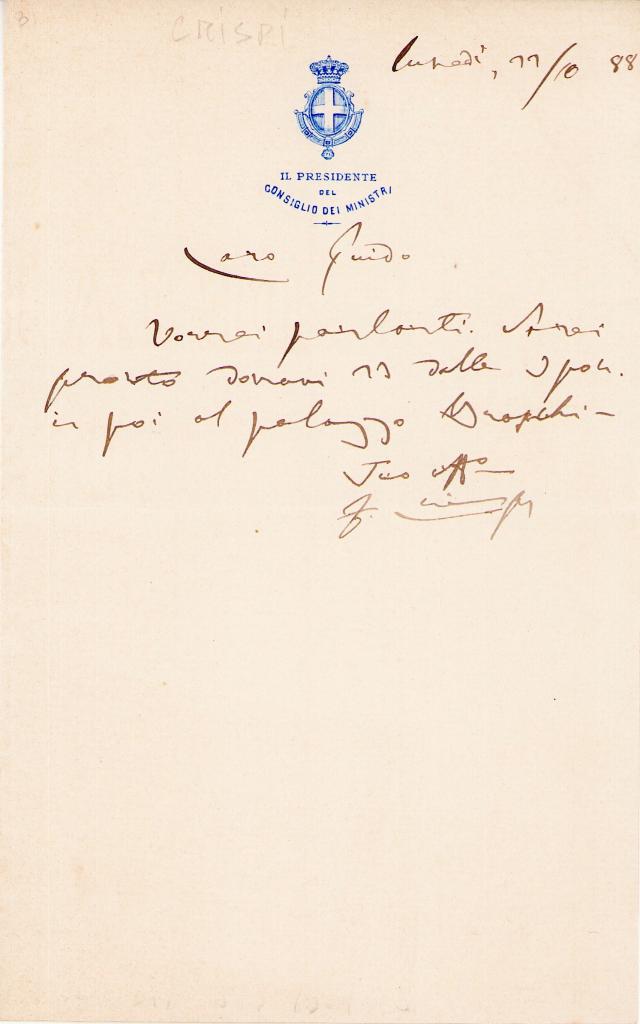 3
CRISPI
lunedì, 11/6 88
IL PRESIDENTE
DEL
CONSIGLIO DEI MINISTRI
Caro Guido
Vorrei parlarti. Sarai
pronto domani 12 dalle 3 pom.
in poi al palazzo Braschi—
Tuo affo
F. Crispi